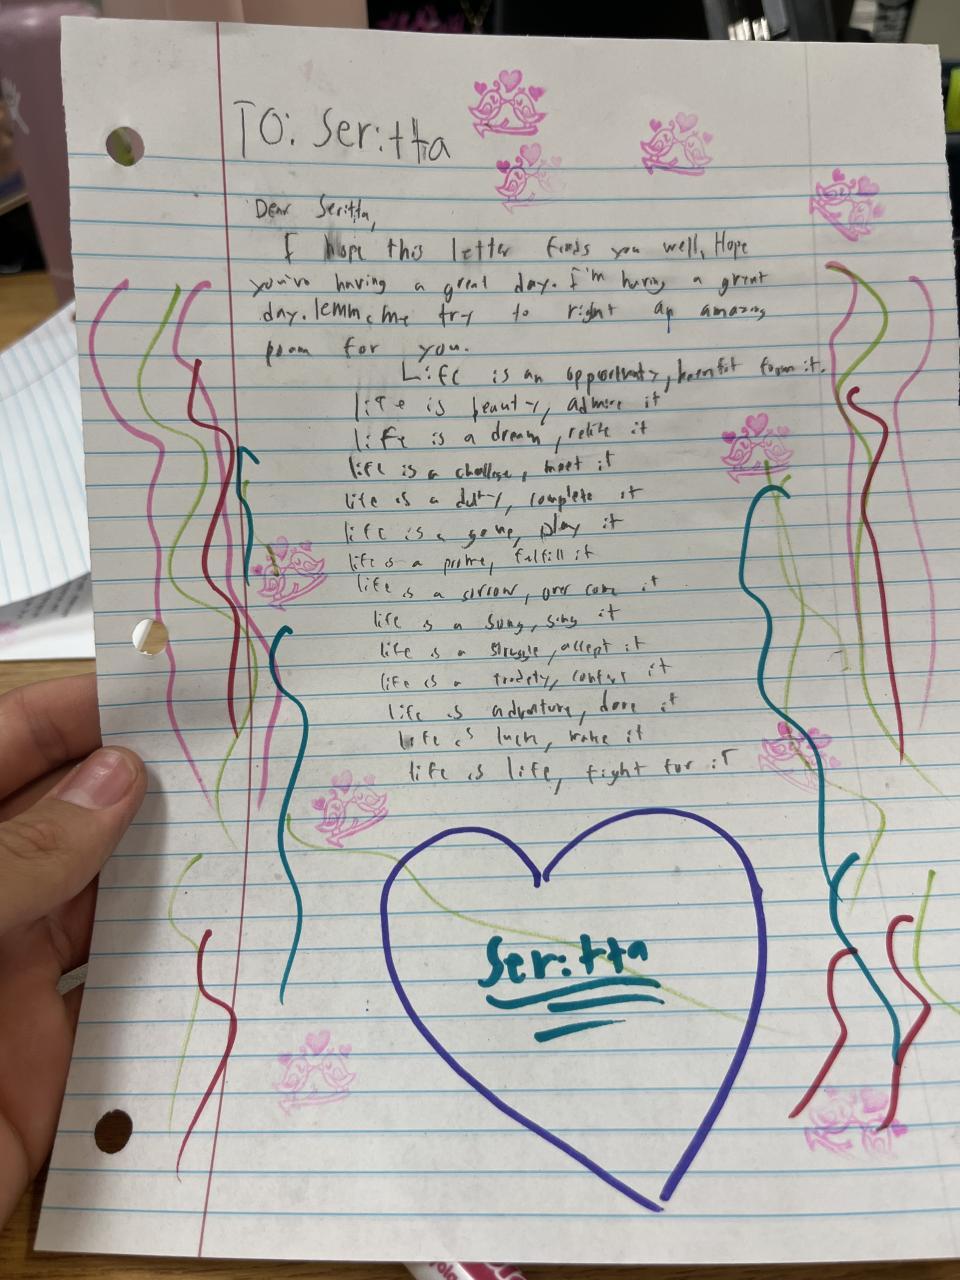 TO: Seritta
Dear Seritta,
I hope this letter finds you well, Hope
you're having a great day. I'm having a great
day. lemme me try to right an amazing
poam for you.
Life is an opportunity, benifit from it.
life is beauty, admire it
life is a dream, it
life is a challege, meet it
life is a duty, complete it
life is a game, play it
life is a fulfill it
life is a sorrow, over come it
life is a song, sing it
life is a struggle, accept it
life is a it
life is adventure, dare it
life is luck, make it
life is life, fight for it
Seritta